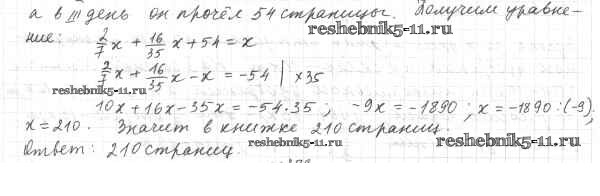 а в III день он прочёл 54 страницы. Получим уравне-
ние: 2/7 x + 16/35 x + 54 = x
reshebnik5-11.ru
2/7 x + 16/35 x - x = -54 | ×35
reshebnik5-11.ru
10x + 16x - 35x = -54·35; -9x = -1890; x = -1890:(-9);
x = 210. Значит в книжке 210 страниц.
Ответ: 210 страниц.
reshebnik5-11.ru
reshebnik5-11.ru